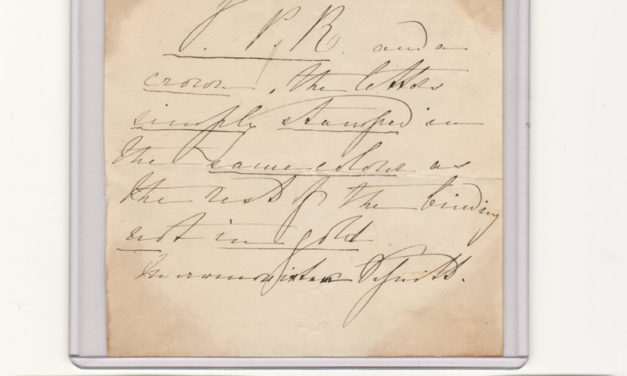 V. P. R. and a
crown, the letters
simply stamped in
the same colour as
the rest of the binding
not in gold
In Schnitt.